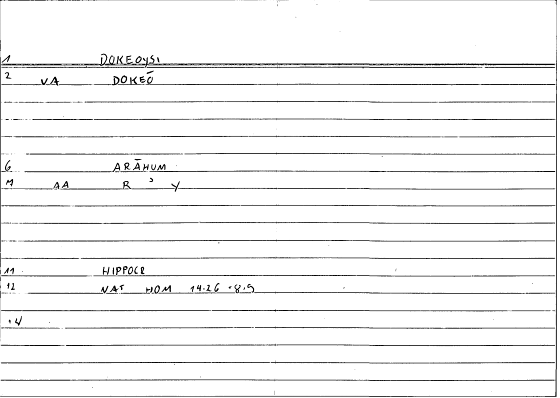 1 DOKEOYSI
2 VA DOKEŌ
6 ARĀHUM
M AA R ɔ Y
11 HIPPOCR
12 NAT HOM 14.26 -8.9
.4